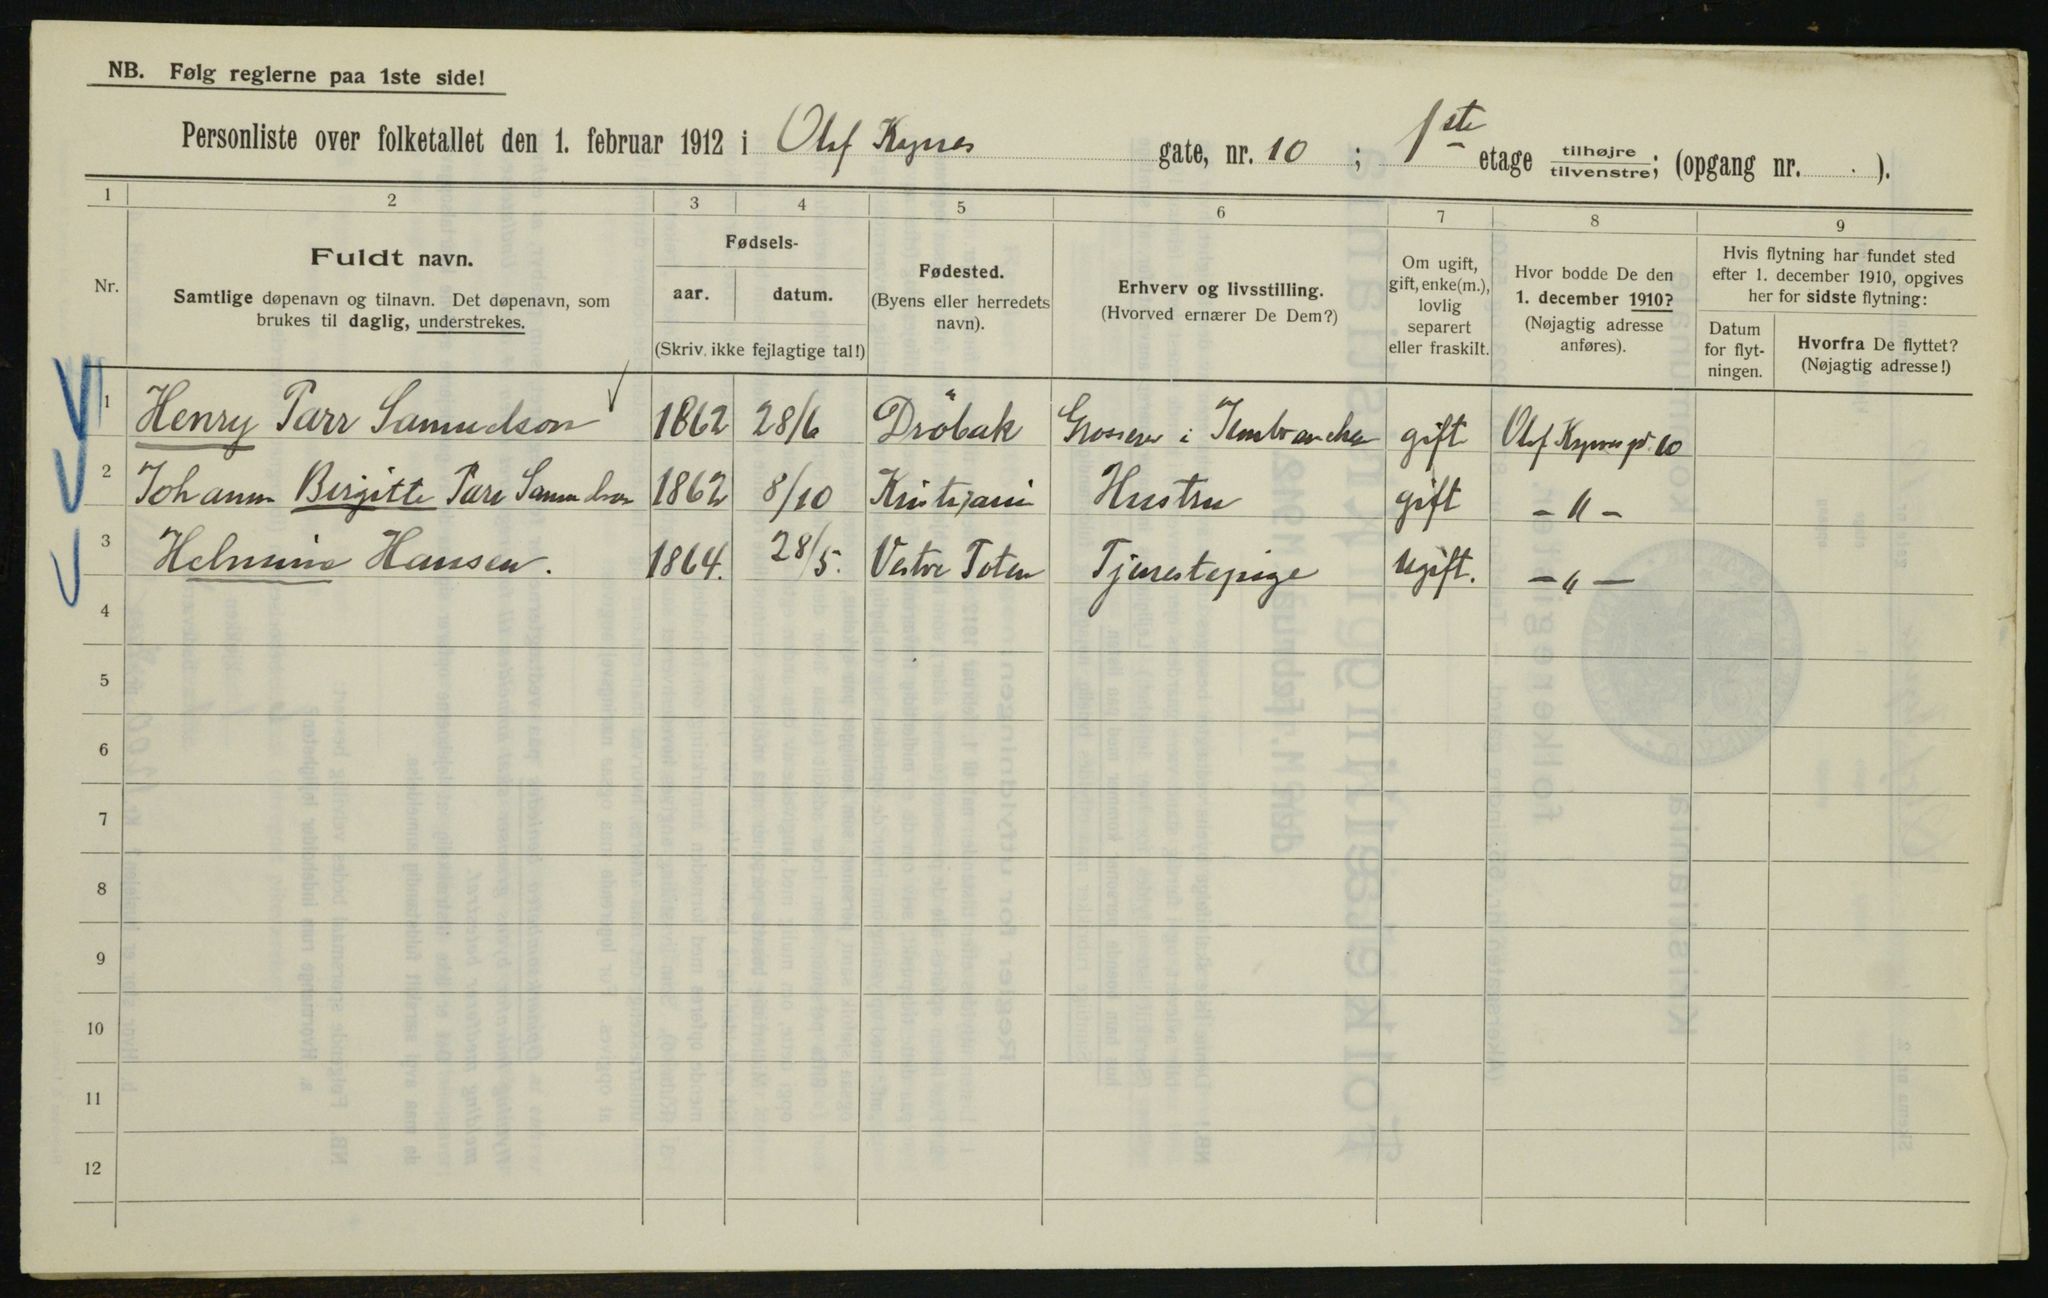 NB. Følg reglerne paa 1ste side!
Personliste over folketallet den 1. februar 1912 i Olaf Kyrres gate, nr. 10 ; 1ste etage tilhøjre tilvenstre; (opgang nr. ).
1 2 3 4 5 6 7 8 9
Nr.
Fuldt navn.
Samtlige døpenavn og tilnavn. Det døpenavn, som
brukes til daglig, understrekes.
Fødsels-
aar. datum.
(Skriv ikke fejlagtige tal!)
Fødested.
(Byens eller herredets
navn).
Erhverv og livsstilling.
(Hvorved ernærer De Dem?)
Om ugift,
gift, enke(m.),
lovlig
separert
eller fraskilt.
Hvor bodde De den
1. december 1910?
(Nøjagtig adresse
anføres).
Hvis flytning har fundet sted
efter 1. december 1910, opgives
her for sidste flytning:
Datum
for flyt-
ningen.
Hvorfra De flyttet?
(Nøjagtig adresse!)
1 Henry Parr Samuelson 1862 28/6 Drøbak Grosserer i Jernbranchen gift Olaf Kyrres gt. 10
2 Johanne Birgitte Parr Samuelson 1862 8/10 Kristiania Hustru gift - " -
3 Helmine Hansen. 1864. 28/5. Vestre Toten Tjenestepige Ugift. - " -
4
5
6
7
8
9
10
11
12